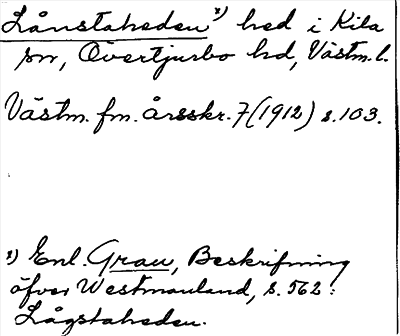 Lånstaheden x) hed i Kila
sn, Övertjurbo hd, Västm. l.
Västm. fm. årsskr. 7 (1912) s. 103.
x) Enl. Grau, Beskrifning
öfver Westmanland, s. 562:
Lågstaheden.